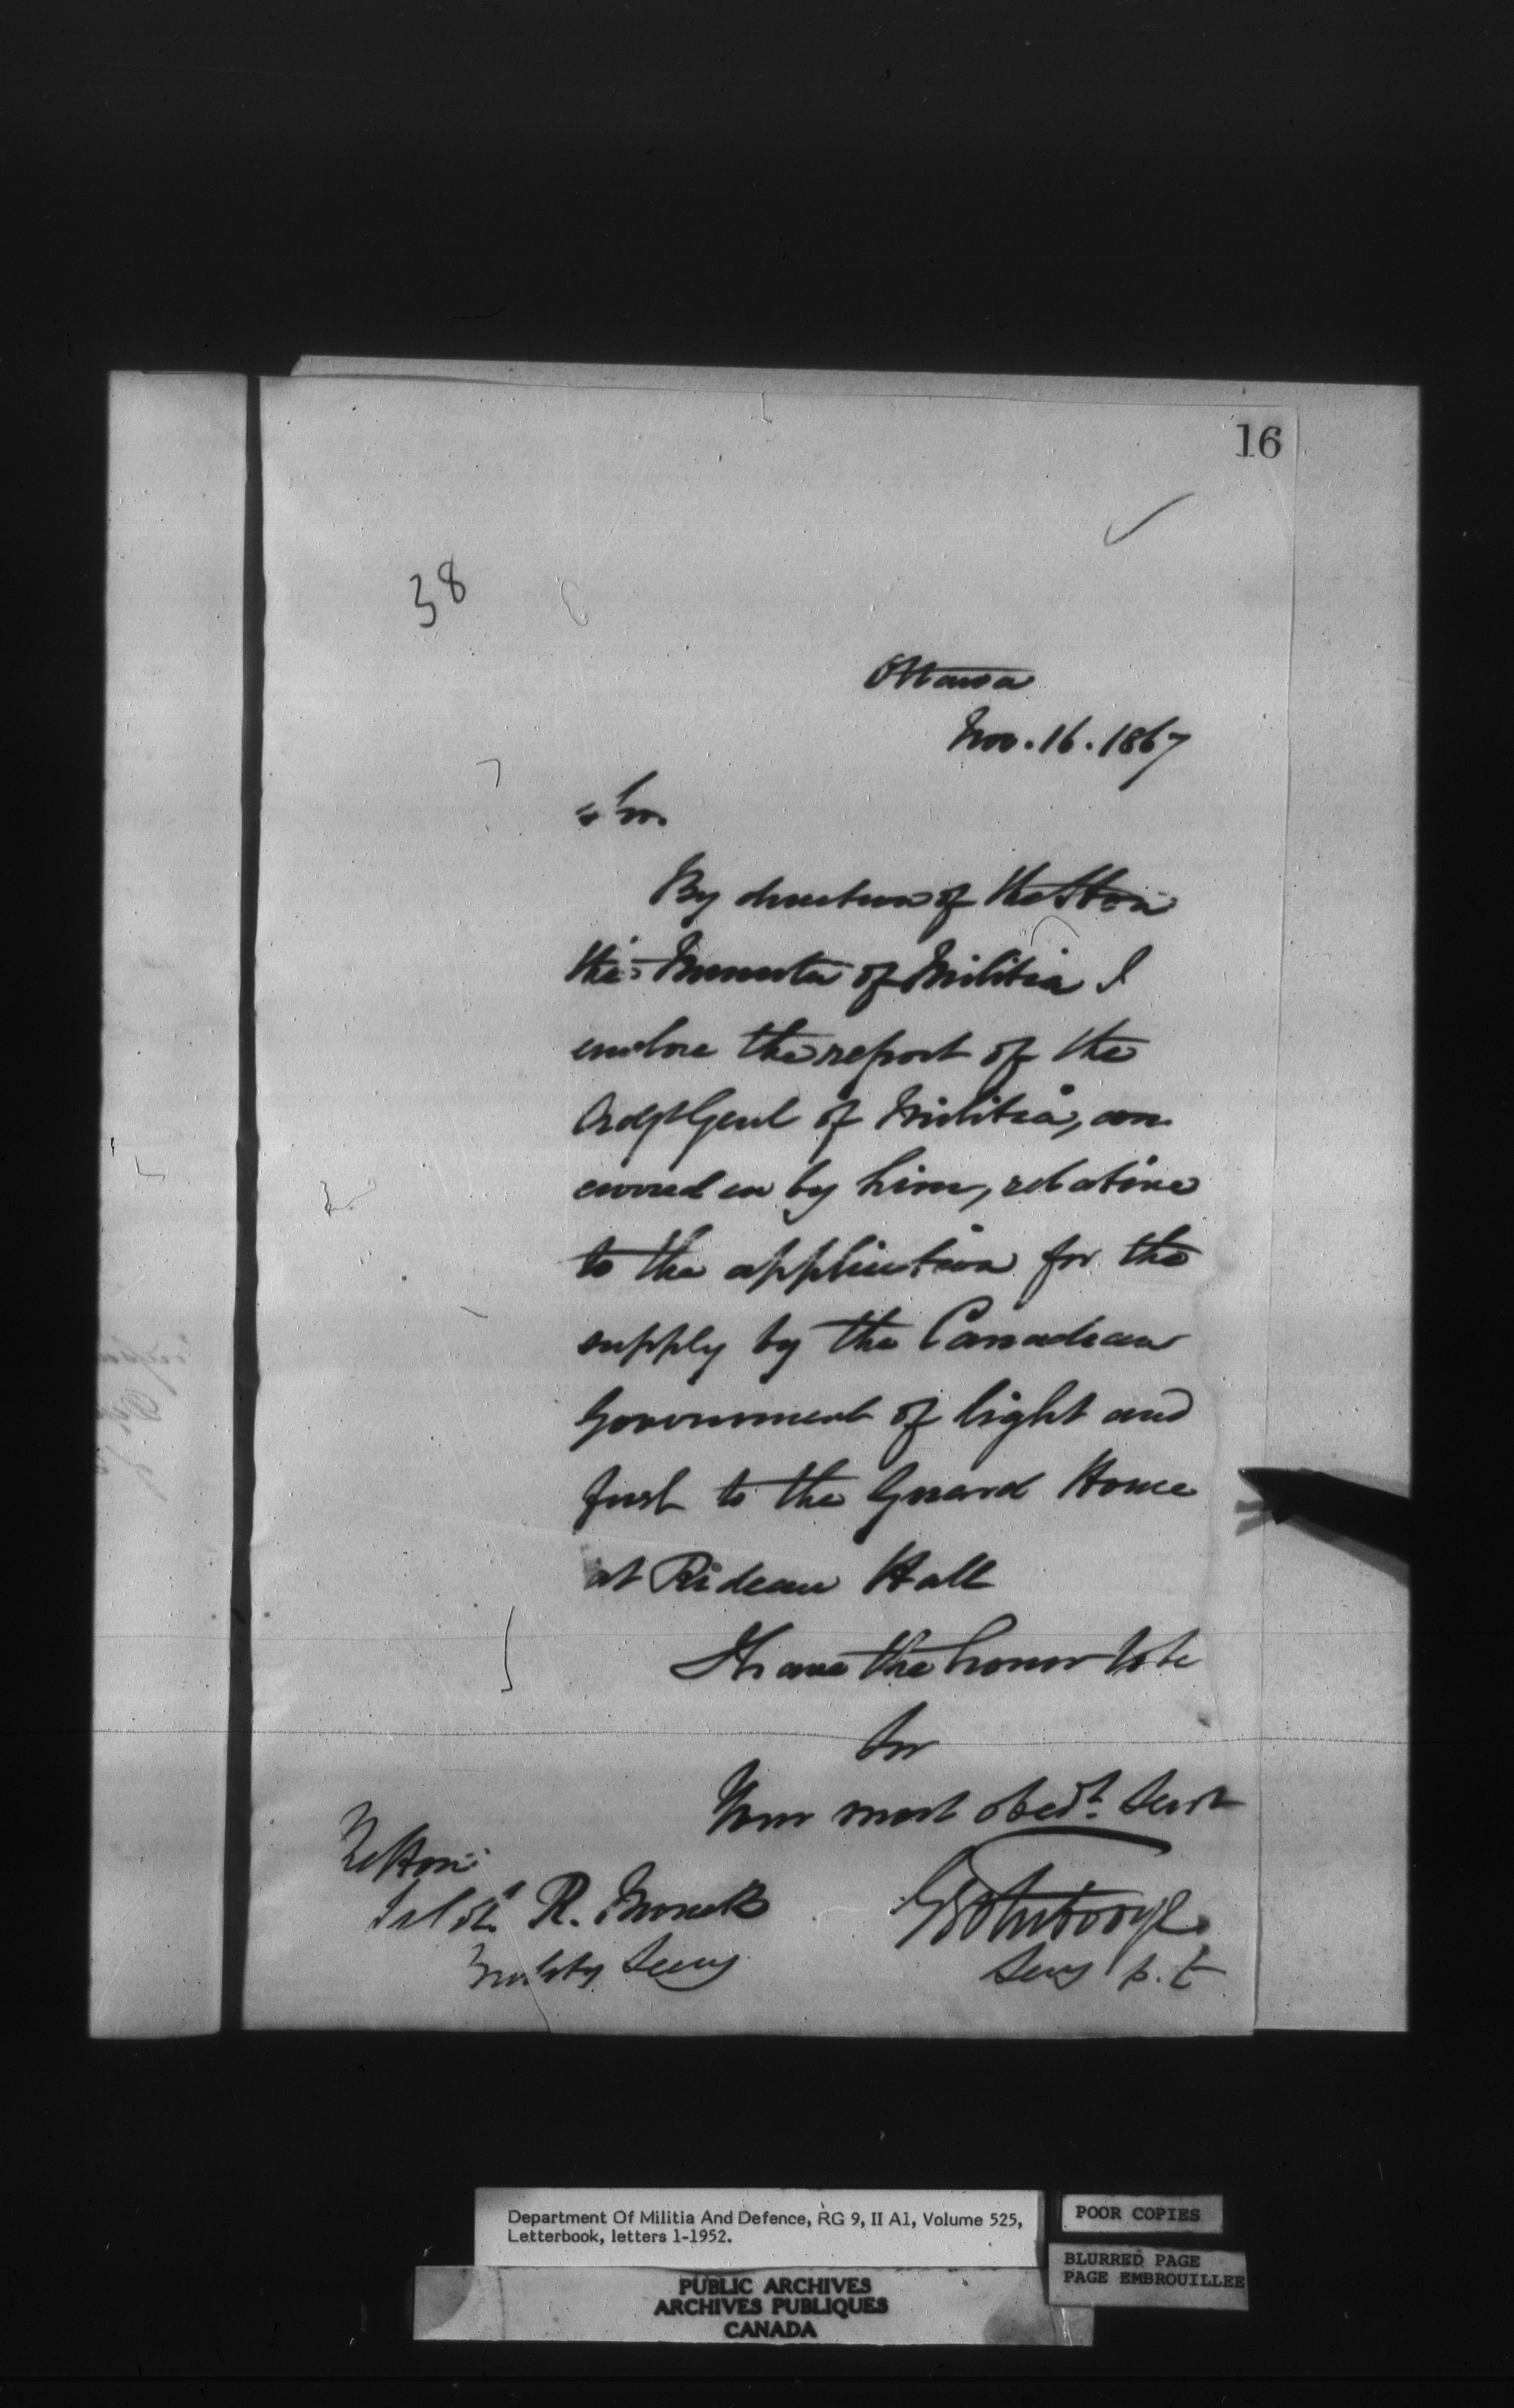 16
38
Ottawa
Nov. 16. 1867
Sir
By direction of the Hon
the Minister of Militia I
enclose the report of the
Adjt Genl of Militia, con
curred in by him, relative
to the application for the
supply by the Canadian
Government of light and
fuel to the Guard House
at Rideau Hall
I have the honor to be
Sir
Your most obedt. Servt
The Hon:
R. Monck
Secy
Secy p. t
Department Of Militia And Defence, RG 9, II A1, Volume 525,
Letterbook, letters 1-1952.
POOR COPIES
BLURRED PAGE
PAGE EMBROUILLEE
PUBLIC ARCHIVES
ARCHIVES PUBLIQUES
CANADA